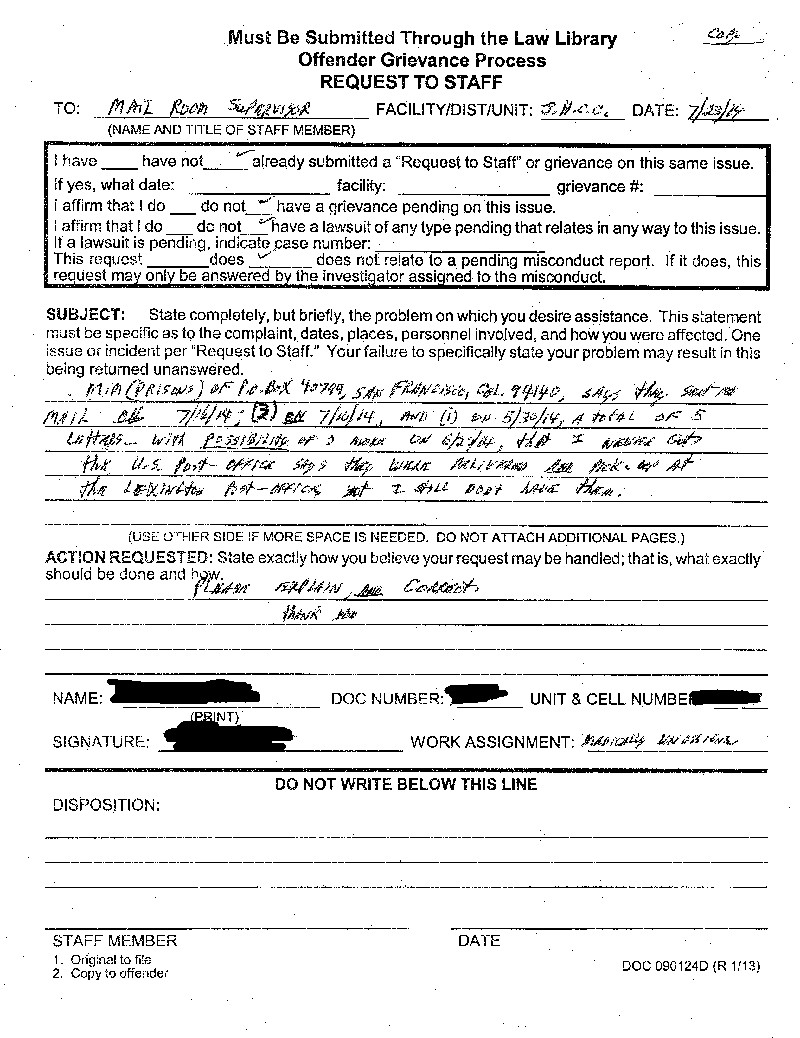 COPY
Must Be Submitted Through the Law Library
Offender Grievance Process
REQUEST TO STAFF
TO: MAIL ROOM SUPERVISOR FACILITY/DIST/UNIT: J.H.C.C. DATE: 7/23/14
(NAME AND TITLE OF STAFF MEMBER)
I have ____ have not ✓ already submitted a "Request to Staff" or grievance on this same issue.
if yes, what date: ____ facility: ____ grievance #: ____
I affirm that I do ___ do not ✓ have a grievance pending on this issue.
I affirm that I do ___ do not ✓ have a lawsuit of any type pending that relates in any way to this issue.
If a lawsuit is pending, indicate case number: ____
This request ____ does ✓ does not relate to a pending misconduct report. If it does, this
request may only be answered by the investigator assigned to the misconduct.
SUBJECT: State completely, but briefly, the problem on which you desire assistance. This statement
must be specific as to the complaint, dates, places, personnel involved, and how you were affected. One
issue or incident per "Request to Staff." Your failure to specifically state your problem may result in this
being returned unanswered.
MIM (PRISONS) OF P.O. BOX 40799, SAN FRANCISCO, CAL. 94140, SAYS they SENT ME
MAIL ON 7/14; (3) ON 7/10/14, AND (1) ON 5/30/14, A TOTAL OF 5
LETTERS - WITH POSSIBILITY OF 3 MORE ON 14, that I NEVER GOT
the U.S. POST-OFFICE SAYS they WERE DELIVERED FOR PICK-UP AT
the LEXINGTON POST-OFFICE, but I STILL DON'T HAVE THEM.
(USE OTHER SIDE IF MORE SPACE IS NEEDED. DO NOT ATTACH ADDITIONAL PAGES.)
ACTION REQUESTED: State exactly how you believe your request may be handled; that is, what exactly
should be done and how.
PLEASE EXPLAIN, AND CORRECT
THANK YOU
NAME: DOC NUMBER: UNIT & CELL NUMBE
(PRINT)
SIGNATURE: WORK ASSIGNMENT: MEDICALLY UNASSIGNED
DO NOT WRITE BELOW THIS LINE
DISPOSITION:
STAFF MEMBER DATE
1. Original to file
2. Copy to offender
DOC 090124D (R 1/13)